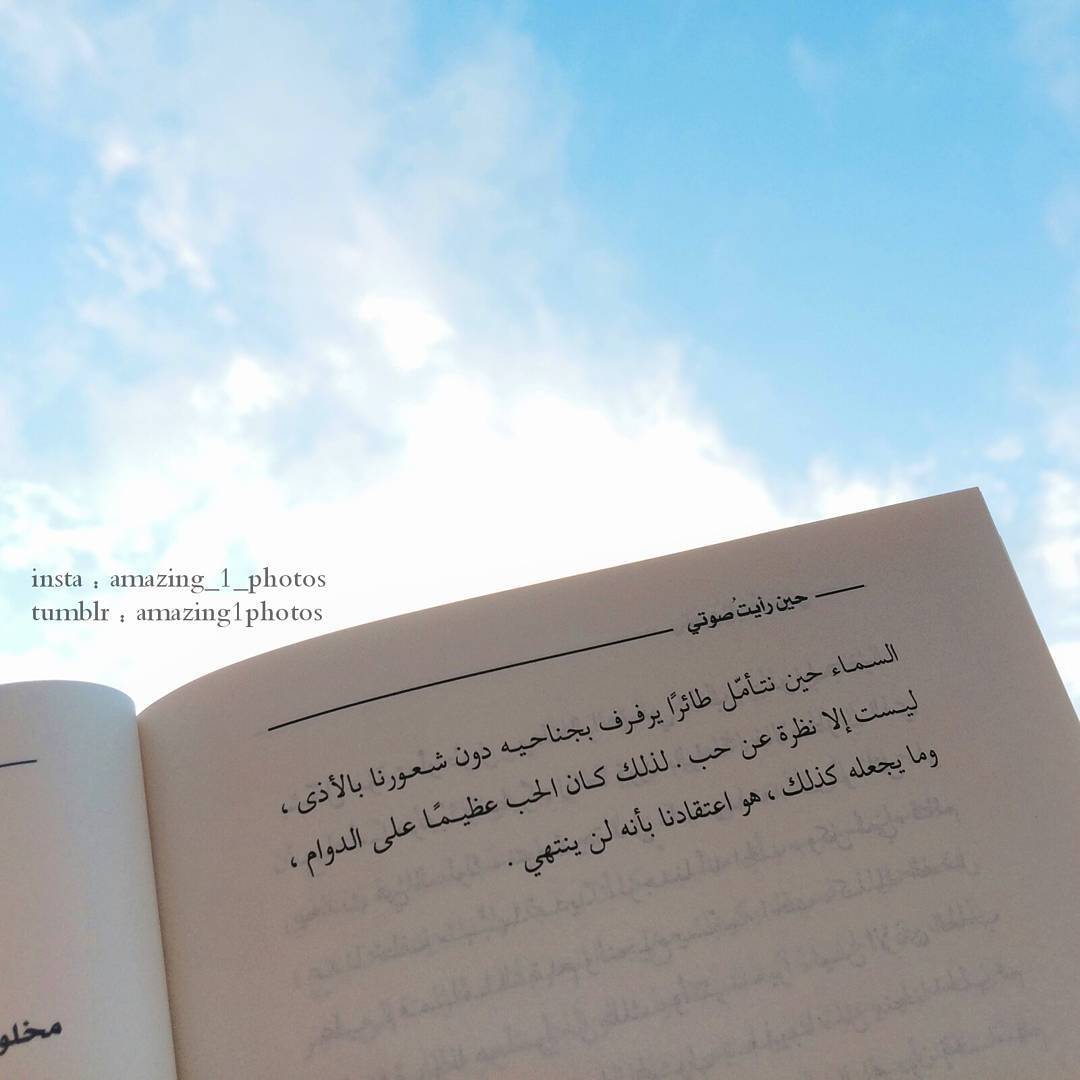 insta : amazing_1_photos
tumblr : amazing1photos
حين رأيتُ صوتي
السماء حين نتأمّل طائرًا يرفرف بجناحيه دون شعورنا بالأذى ،
ليست إلا نظرة عن حب . لذلك كان الحب عظيمًا على الدوام ،
وما يجعله كذلك ، هو اعتقادنا بأنه لن ينتهي .